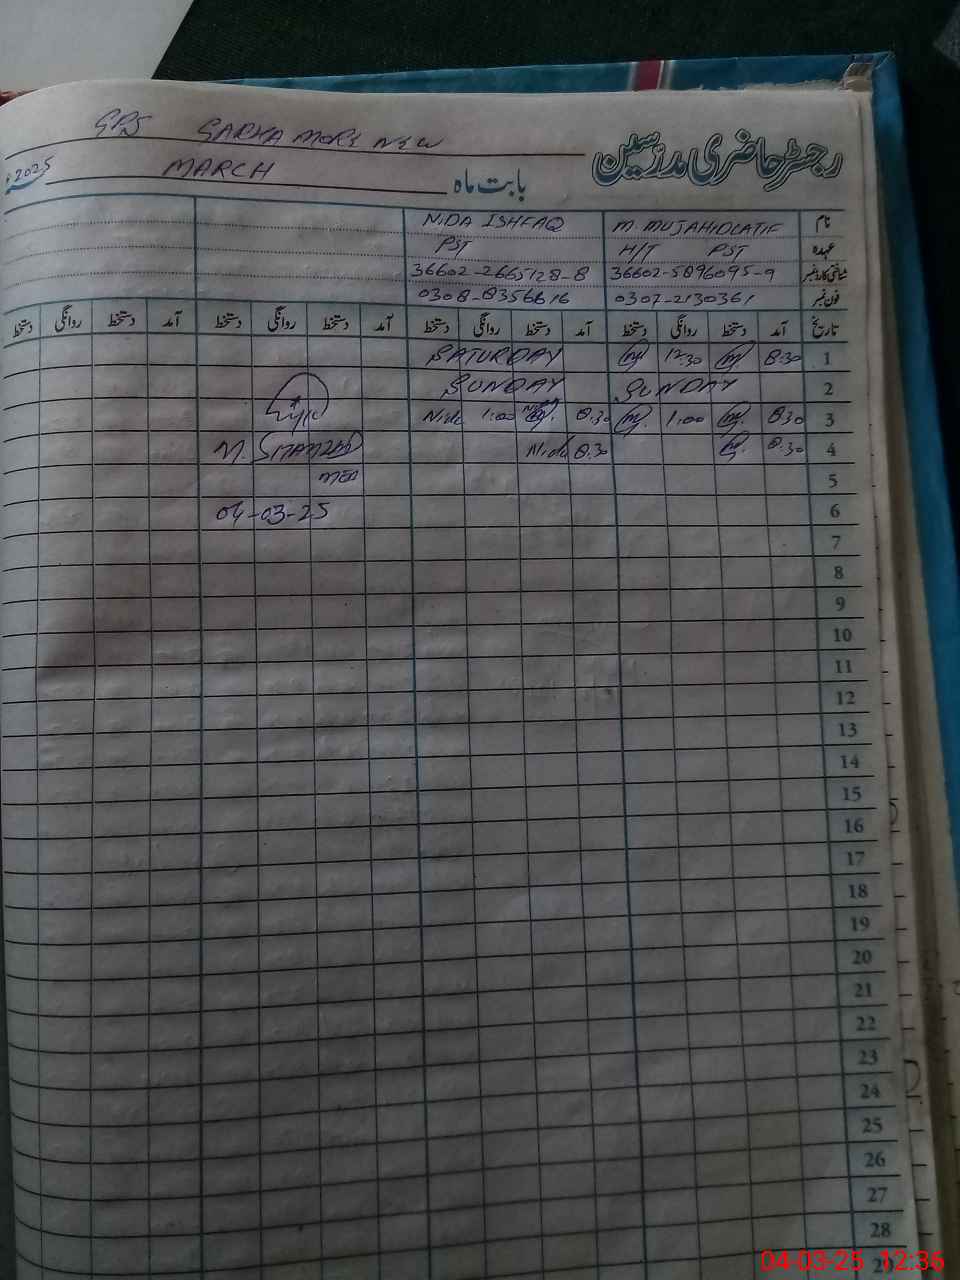 GPS GARHA MORE NEW
رجسٹر حاضری مدرسین
2025 MARCH بابت ماہ
نام M. MUJAHID LATIF NIDA ISHFAQ
عہدہ H/T PST PST
شناختی کارڈ نمبر 36602-5896095-9 36602-2665128-8
فون نمبر 0307-2130361 0308-8356616
تاریخ آمد دستخط روانگی دستخط آمد دستخط روانگی دستخط آمد دستخط روانگی دستخط آمد دستخط روانگی دستخط
1 8:30 12:30 SATURDAY
2 SUNDAY SUNDAY
3 8:30 1:00 8:30 1:00 Nida
4 8:30 8:30 Nida
5 MEA
6 04-03-25
7
8
9
10
11
12
13
14
15
16
17
18
19
20
21
22
23
24
25
26
27
28
29
04-03-25 12:36